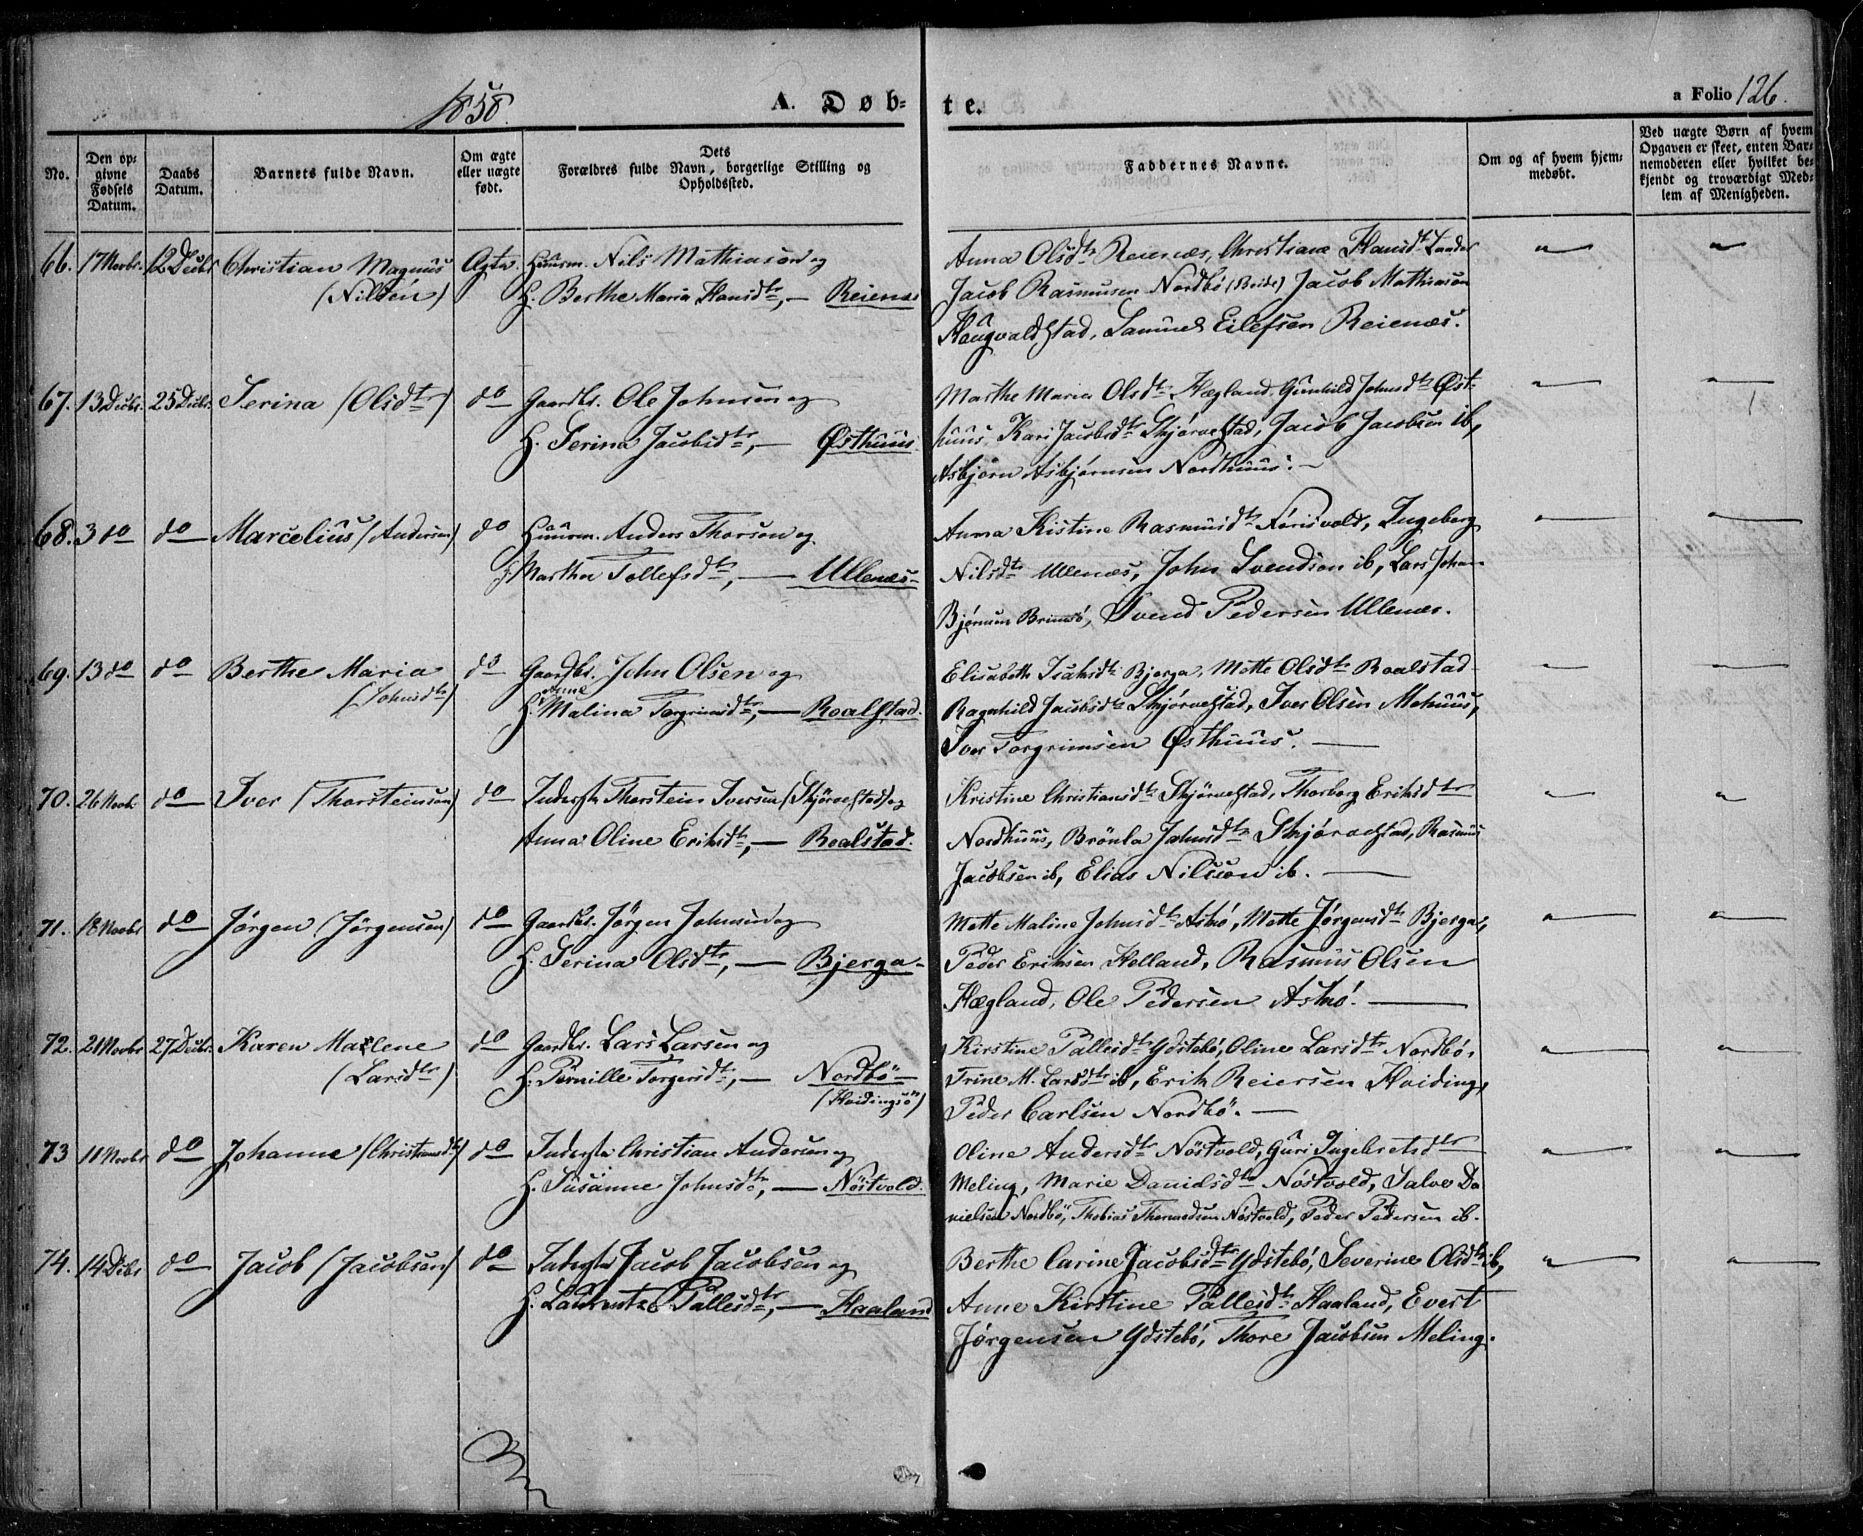 1858.
A. Døb-
te.
a Folio 126.
No.
Den op-
givne
Fødsels
Datum.
Daabs
Datum.
Barnets fulde Navn.
Om ægte
eller uægte
født.
Dets
Forældres fulde Navn, borgerlige Stilling og
Opholdssted.
Faddernes Navne.
Om og af hvem hjem-
medøbt.
Ved uægte Børn af hvem
Opgaven er skeet, enten Bar-
nemoderen eller hvilket be-
kjendt og troværdigt Med-
lem af Menigheden.
66. 17 Novbr. 12 Decbr. Christian Magnus Ægte Huusm. Nils Mathiasen og
(Nilsen) H. Berthe Maria Hansdtr, — Reienæs
Anna Olsdtr Reienæs, Christiane Hansdtr
Jacob Rasmusen Nordbø (Reide) Jacob Mathiasen
Haugvaldstad, Samuel Eilefsen Reienæs.
67. 13 Decbr. 25 Decbr. Serina (Olsdtr) do Gaardbr. Ole Johnsen og
H. Serina Jacobsdtr, — Østhuus
Marthe Maria Olsdtr Hægland, Gunhild Johnsdtr Øst-
huus, Kari Jacobsdtr Skjørvestad, Jacob Jacobsen ib,
Asbjørn Asbjørnsen Nordhuus. —
68. 3 do do Marcelius (Andersen) do Huusm. Anders Thorsen og
H. Marthe Tollefsdtr, — Ullenæs
Anna Kistine Rasmusdtr, Ingeborg
Nilsdtr Ullenæs, John Svendsen ib, Lars Johan
Bjørnsen Brimsø, Svend Pedersen Ullenæs.
69. 13 do do Berthe Maria do Gaardbr. John Olsen og
(Johnsdtr) H. Anne Malina Torgrimsdtr, — Roalstad.
Elisabeth Isaksdtr Bjerga, Mette Olsdtr Roalstad
Ragnhild Jacobsdtr Skjørvestad, Iver Olsen Mehuus,
Iver Torgrimsen Østhuus. —
70. 26 Novbr. do Iver (Thorsteinsen) do Inderste Thorstein Iversen (Skjørvestad) og
Anna Oline Eriksdtr, — Roalstad.
Kristine Christiansdtr Skjørvestad, Thorborg Eriksdtr
Nordhuus, Brønla Johnsdtr Skjørvestad, Rasmus
Jacobsen ib, Elias Nilsson ib. —
71. 18 Novbr do Jørgen (Jørgensen) do Gaardbr. Jørgen Johnsen og
H. Serina Olsdtr, — Bjerga
Mette Maline Johnsdtr Askø, Mette Jørgensdtr Bjerga,
Peder Eriksen Helland, Rasmus Olsen
Hægland, Ole Pedersen Askø. —
72. 21 Novbr 27 Decbr. Karen Malene do Gaardbr. Lars Larsen og
(Larsdtr) H. Pernille Torgersdtr, — Nordbö
(Haidingsö)
Kirstine Pallesdtr Ydstebö, Oline Larsdtr Nordbø,
Trine M. Larsdtr ib, Erik Reiersen Haiding,
Peder Carlsen Nordbö. —
73 11 Novbr do Johanne (Christiansdtr) do Inderste Christian Andersen og
H. Susanne Johnsdtr, — Nöstvold.
Oline Andersdtr Nöstvold, Guri Ingebretsdtr
Meling, Marie Danielsdtr Nöstvold, Salve Da
nielsen Nordbö, Thobias Thormodsen Nöstvold, Peder Pedersen ib.
74. 14 Decbr do Jacob (Jacobsen) do Inderste Jacob Jacobsen og
H. Laurentze Pallesdtr, — Haaland
Berthe Carine Jacobsdtr Ydstebö, Severine Olsdtr ib,
Anne Kirstine Pallesdtr Haaland, Evert
Jørgensen Ydstebö, Thore Jacobsen Meling.